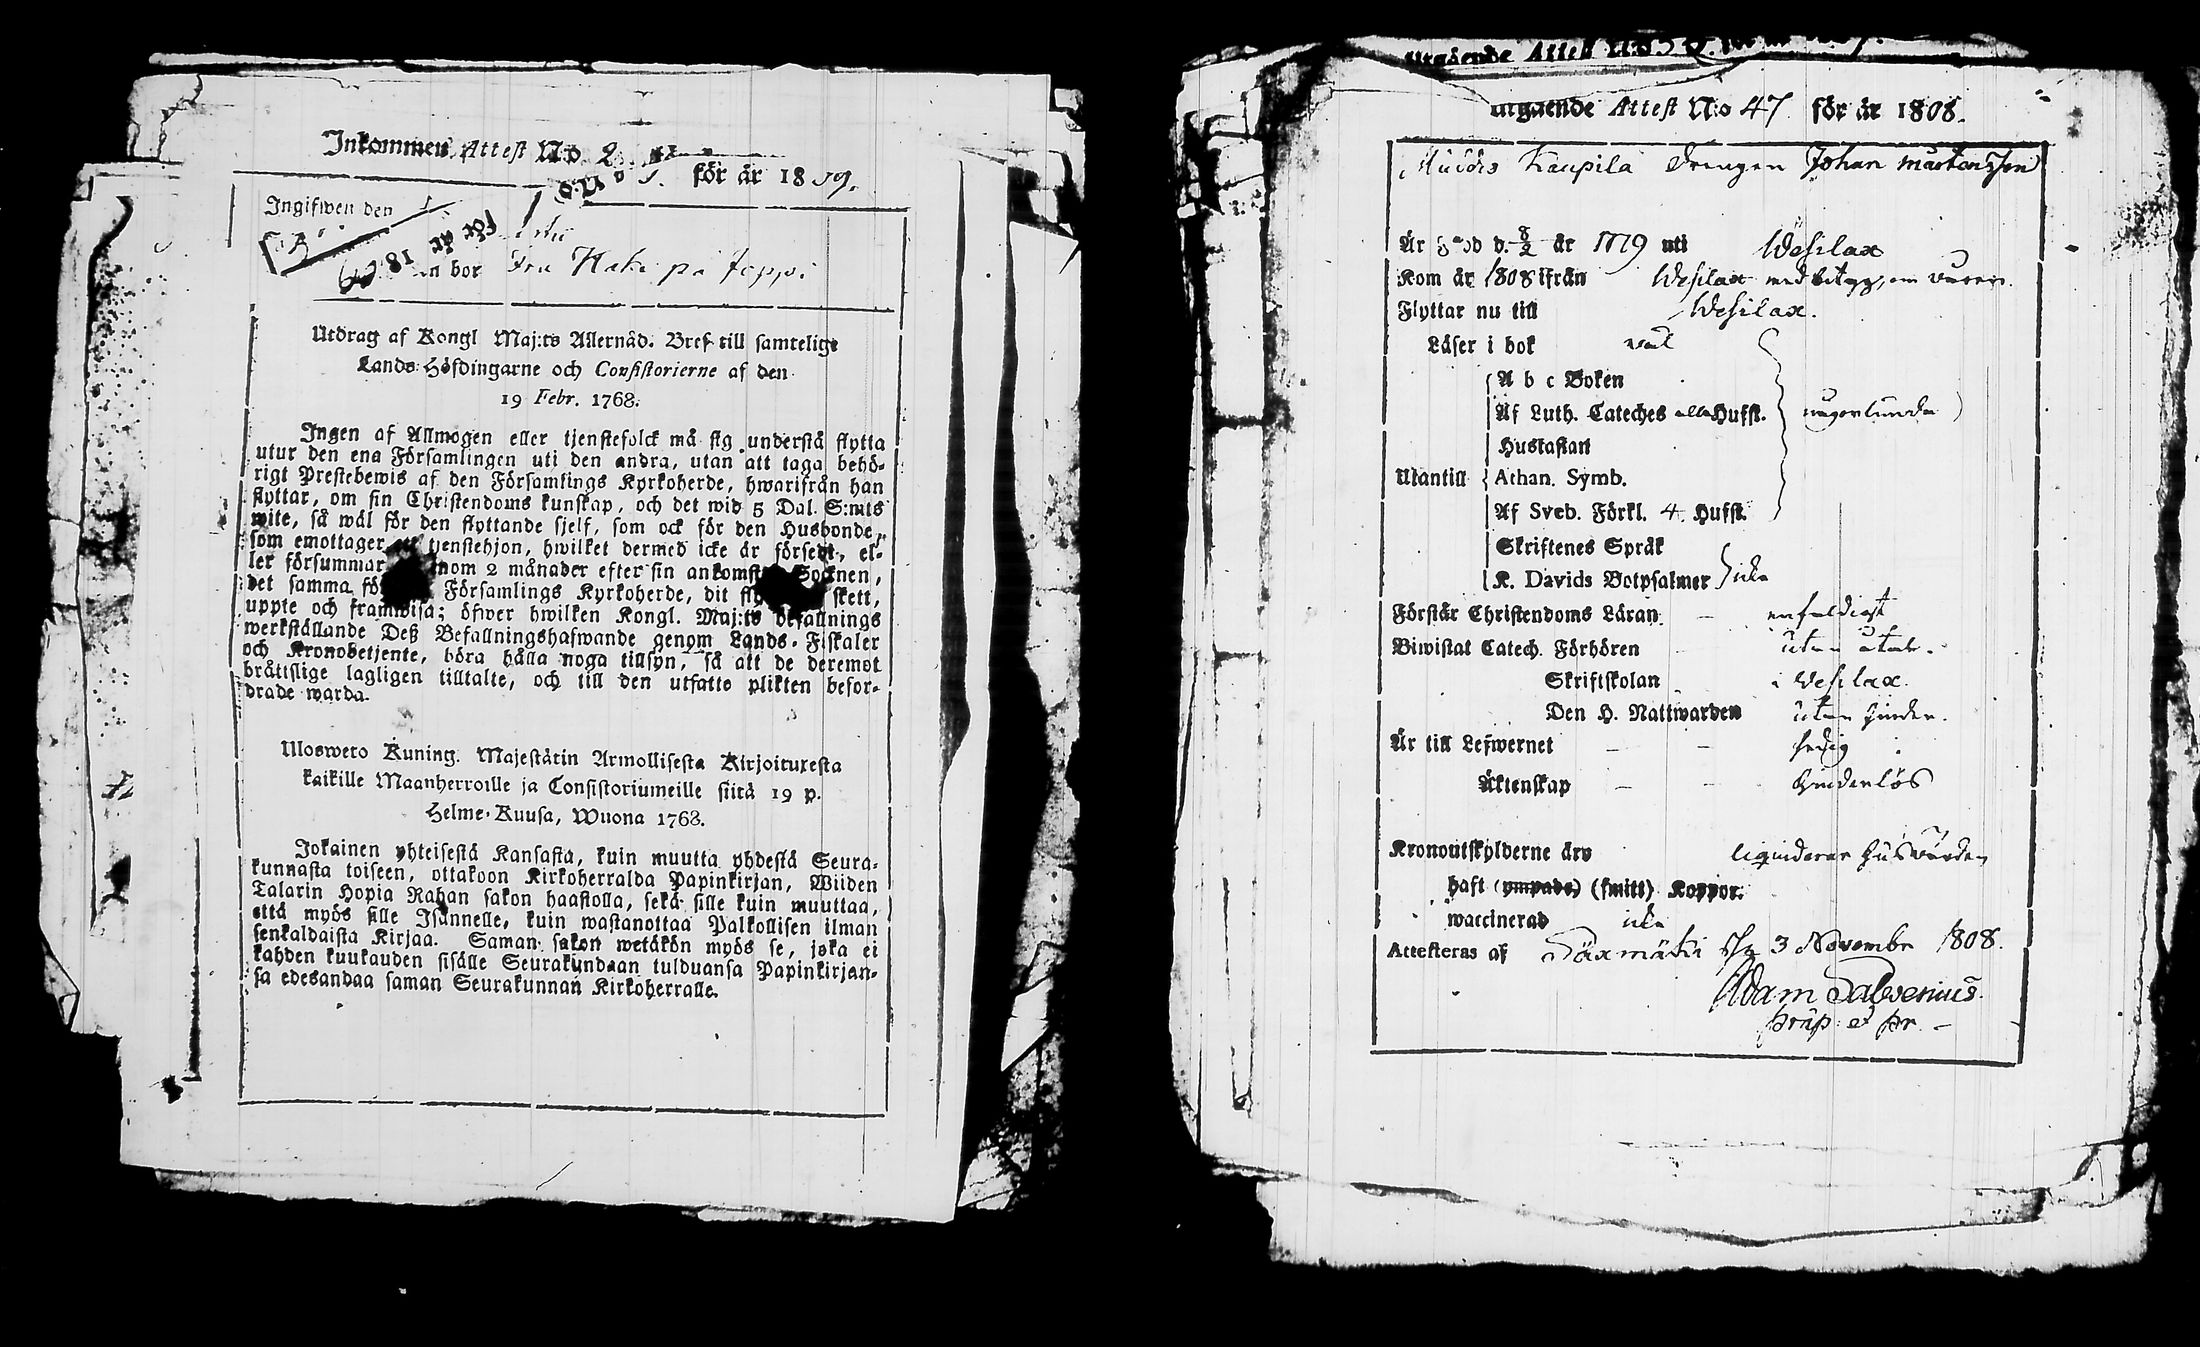 Inkommen Attest No 2.
för år 1809.
Ingifwen den
för år 18
bor Fru Hake på Joppi
Utdrag af Kongl Maj:ts Allernåd. Bref till samtelige
Lands-Höfdingarne och Consistorierne af den
19 Febr. 1768.
Ingen af Allmogen eller tjenstefolck må sig understå flytta
utur den ena Församlingen uti den andra, utan att taga behö-
rigt Prestebewis af den Församlings Kyrkoherde, hwarifrån han
flyttar, om sin Christendoms kunskap, och det wid 5 Dal. S:mts
wite, så wäl för den flyttande sjelf, som ock för den Husbonde,
som emottager ett tjenstehjon, hwilket dermed icke är försedt, el-
ler försummar nom 2 månader efter sin ankomst Socknen,
det samma fö Församlings Kyrkoherde, dit fly skett,
uppte och framwisa; öfwer hwilken Kongl. Maj:ts befallnings
werkställande Deß Befallningshafwande genom Lands-Fiskaler
och Kronobetjente, böra hålla noga tillsyn, så att de deremot
bråttslige lagligen tilltalte, och till den utsatte plikten befor-
drade warda.
Ulosweto Kuning. Majestätin Armollisesta Kirjoituxesta
kaikille Maanherroille ja Consistoriumeille siitä 19 p.
Helme-Kuusa, Wuona 1768.
Jokainen yhteisestä Kansasta, kuin muutta yhdestä Seura-
kunnasta toiseen, ottakoon Kirkoherralda Papinkirjan, Wiiden
Talarin Hopia Rahan sakon haastolla, sekä sille kuin muuttaa,
että myös sille Isännelle, kuin wastanottaa Palkollisen ilman
senkaldaista Kirjaa. Saman sakon wetäkön myös se, joka ei
kahden kuukauden sisälle Seurakundaan tulduansa Papinkirjan-
sa edesandaa saman Seurakunnan Kirkoherralle.
Utgående Attest No
Utgående Attest No 47 för år 1808.
Kaupila Drengen Johan Mårtensson
Är född d. 8/2 år 1779 uti Wesilax
Kom år 1808 ifrån Wesilax med betyg, om
Flyttar nu till Wesilax.
Läser i bok wäl
A b c Boken
Af Luth. Cateches alla Hufst. någorlunda
Hustaflan
Utantill Athan. Symb.
Af Sveb. Förkl. 4. Hufst.
Skriftenes Språk
K. Davids Botpsalmer icke
Förstår Christendoms Läran enfaldigt
Biwistat Catech. Förhören utan
Skriftskolan i Wesilax.
Den H. Nattwarden utan hinder.
Är till Lefwernet fredig
Äktenskap hinderlös
Kronoutskylderne äro liqviderar husbonden
haft (ympade) (smitt) Koppor.
waccinerad icke
Attesteras af Säxmäki d. 3 Novembr 1808.
Adam Salvenius.
Präp: et Pr.